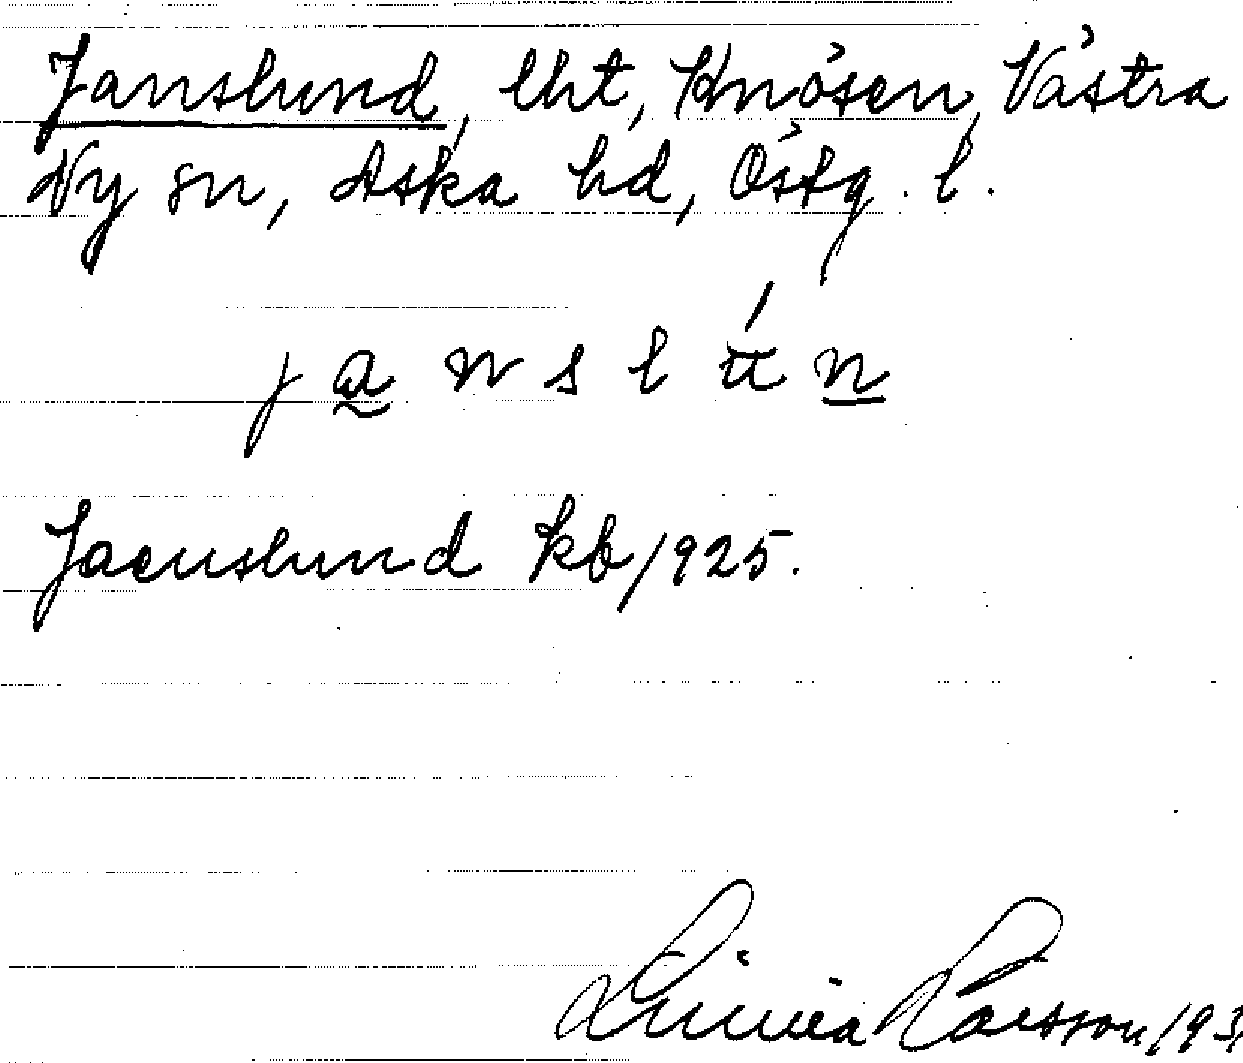 Janslund, lht, Knösen, Västra
Ny sn, Aska hd, Östg. l.
j a n s l u̇́ n
Jaenslund kb 1925.
Linnéa Larsson 193